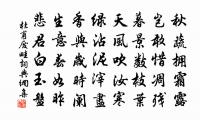 秋蔬擁霜露
豈敢惜凋殘
暮景數枝葉
天風吹汝寒
綠沾泥滓盡
香與歲時闌
生意春如昨
悲君白玉盤
杜甫廢畦詞典網集